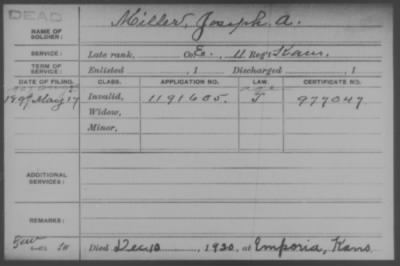 DEAD
Miller, Joseph A.
NAME OF
SOLDIER:
SERVICE:
Late rank, Co. E., 11 Reg't Kans.
TERM OF
SERVICE:
Enlisted , 1 Discharged , 1
DATE OF FILING. CLASS. APPLICATION NO. LAW. CERTIFICATE NO.
1897 May 17 Invalid, 1191605. 977047
Widow,
Minor,
ADDITIONAL
SERVICES:
REMARKS:
Died Dec. 10, 1920, at Emporia, Kans.